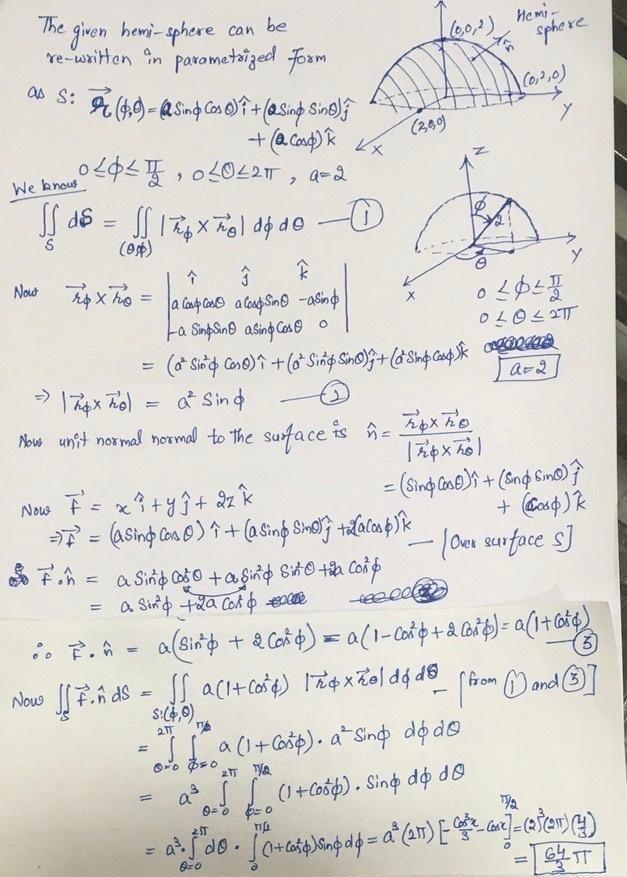 The given hemi-sphere can be
re-written in parametrized form
as S: r⃗(ϕ,θ) = (a Sinϕ Cosθ) î + (a Sinϕ Sinθ) ĵ
+ (a Cosϕ) k̂
0 ≤ ϕ ≤ π/2 , 0 ≤ θ ≤ 2π , a = 2
(0,0,2)
Hemi-
sphere
n̂
(0,2,0)
Y
(2,0,0)
X
We know
∬_S dS = ∬_(θ,ϕ) |r⃗ϕ × r⃗θ| dϕ dθ — ①
Z
ϕ
2
Y
θ
X
0 ≤ ϕ ≤ π/2
0 ≤ θ ≤ 2π
a = 2
Now r⃗ϕ × r⃗θ = | î ĵ k̂ |
| a Cosϕ Cosθ a Cosϕ Sinθ -a Sinϕ |
| -a Sinϕ Sinθ a Sinϕ Cosθ 0 |
= (a² Sin²ϕ Cosθ) î + (a² Sin²ϕ Sinθ) ĵ + (a² Sinϕ Cosϕ) k̂
⇒ |r⃗ϕ × r⃗θ| = a² Sinϕ — ②
Now unit normal normal to the surface is n̂ = (r⃗ϕ × r⃗θ) / |r⃗ϕ × r⃗θ|
= (Sinϕ Cosθ) î + (Sinϕ Sinθ) ĵ
+ (Cosϕ) k̂
Now F⃗ = x î + y ĵ + 2z k̂
⇒ F⃗ = (a Sinϕ Cosθ) î + (a Sinϕ Sinθ) ĵ + 2(a Cosϕ) k̂ — [Over surface S]
F⃗ . n̂ = a Sin²ϕ Cos²θ + a Sin²ϕ Sin²θ + 2a Cos²ϕ
= a Sin²ϕ + 2a Cos²ϕ
∴ F⃗ . n̂ = a(Sin²ϕ + 2 Cos²ϕ) = a(1 - Cos²ϕ + 2 Cos²ϕ) = a(1 + Cos²ϕ) — ③
Now ∬_S F⃗ . n̂ dS = ∬_S:(ϕ,θ) a(1 + Cos²ϕ) |r⃗ϕ × r⃗θ| dϕ dθ — [from ① and ③]
= ∫_θ=0^2π ∫_ϕ=0^π/2 a(1 + Cos²ϕ) . a² Sinϕ dϕ dθ
= a³ ∫_θ=0^2π ∫_ϕ=0^π/2 (1 + Cos²ϕ) . Sinϕ dϕ dθ
= a³ . ∫_θ=0^2π dθ . ∫_0^π/2 (1 + Cos²ϕ) Sinϕ dϕ = a³ (2π) [-Cos³x/3 - Cosx]_0^π/2 = (2)³ (2π) (4/3)
= 64/3 π